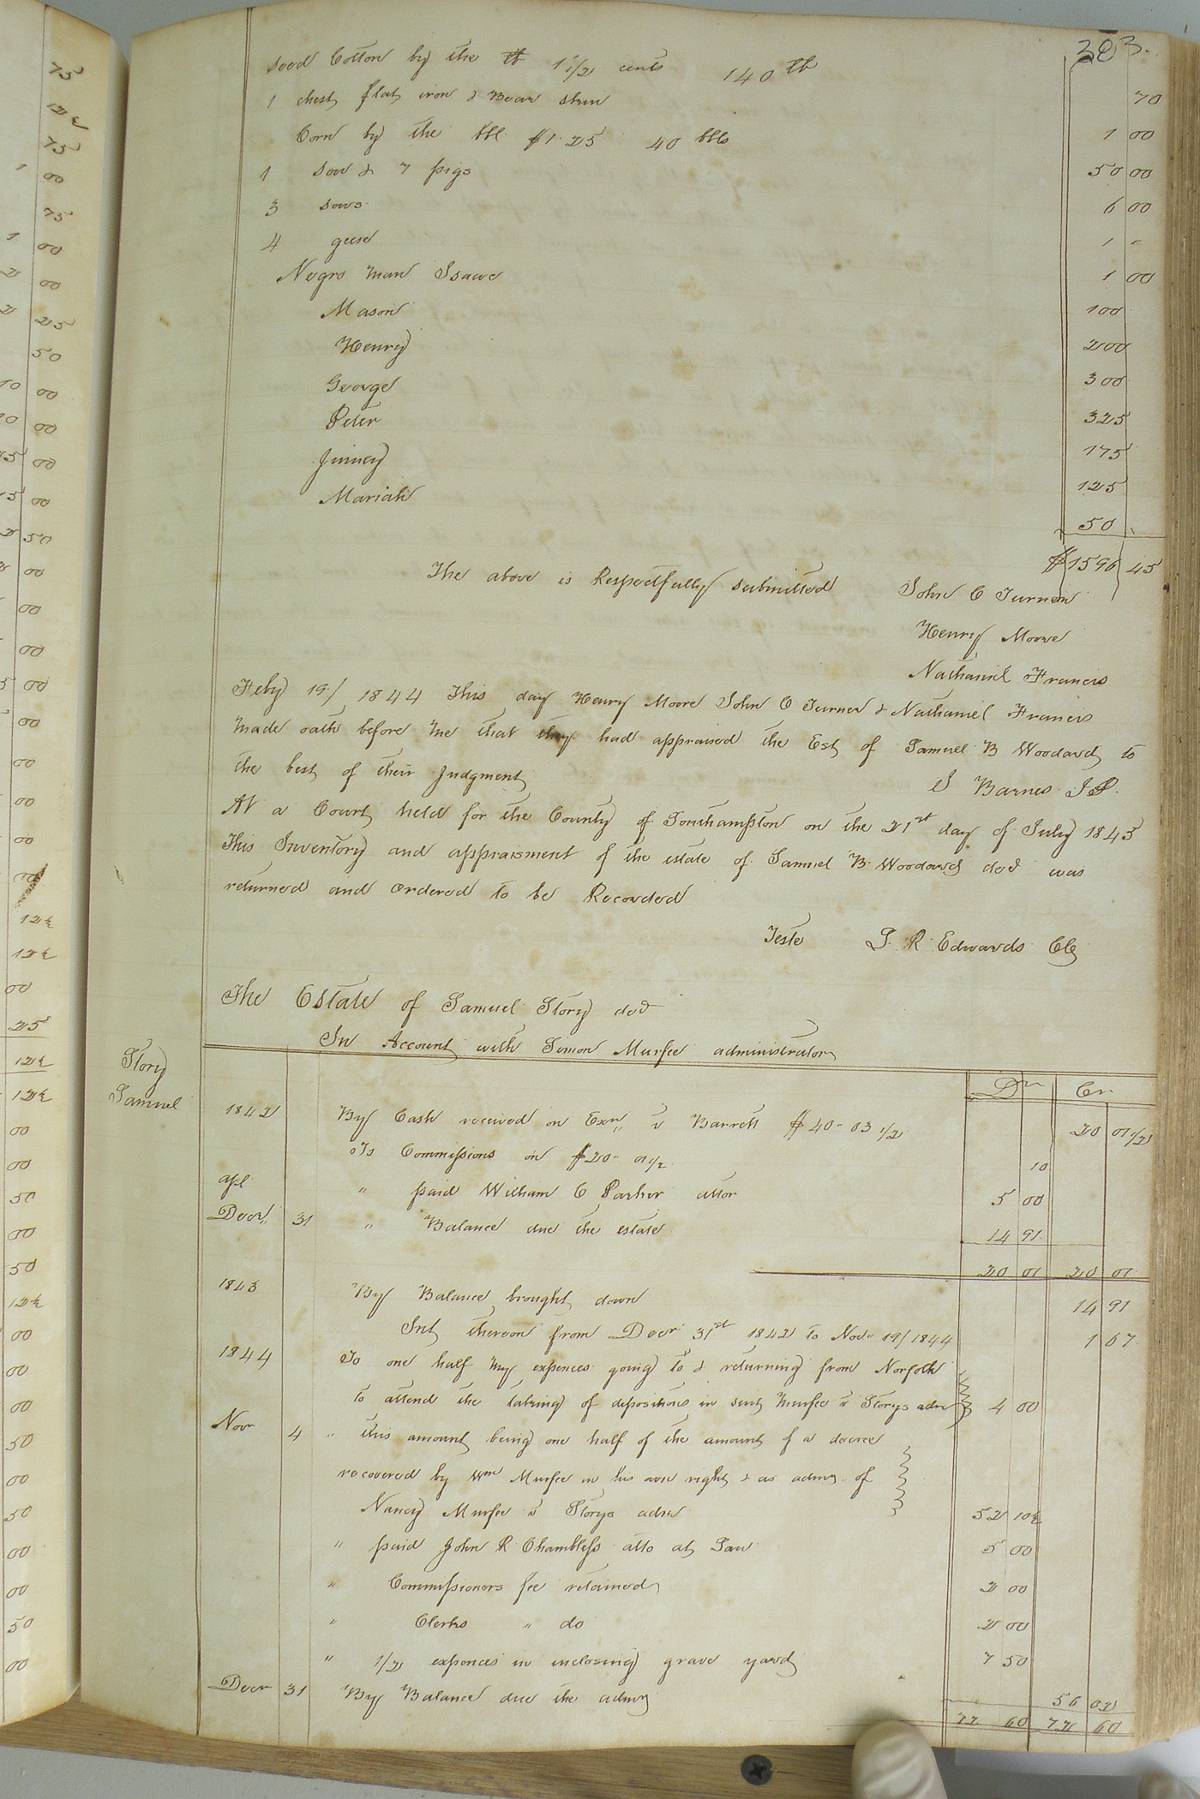 383.
Seed Cotton by the lb 1 1/2 cents 140 lb
1 chest flat iron & Bear skin 70
Corn by the bbl $1.25 40 bbls 1 00
1 sow & 7 pigs 50 00
3 sows 6 00
4 geese 1 "
Negro man Isaac 1 00
Mason 100
Henry 200
George 300
Peter 325
Jinney 175
Mariah 125
50
$1596 45
The above is Respectfully submitted John C Turner
Henry Moore
Nathaniel Francis
Feby 19/ 1844 This day Henry Moore John C Turner & Nathaniel Francis
made oath before me that they had appraised the Est of Samuel B Woodard to
the best of their Judgment
S Barnes J.P.
At a Court held for the County of Southampton on the 21st day of July 1845
This Inventory and appraisment of the estate of Samuel B. Woodard decd was
returned and ordered to be Recorded
Teste L R Edwards Clk
The Estate of Samuel Story decd
In Account with Simon Murfee administrator
Dr Cr
Story
Samuel
1842 By Cash received on Exn v Barrett $40-03 1/2 20 01 1/2
To Commissions on $20-01 1/2 10
apl " paid William C Parker attor 5 00
Decr 31 " Balance due the estate 14 91
20 01 20 01
1843 By Balance brought down 14 91
Int thereon from Decr 31st 1842 to Nov 19/1844 1 67
1844 To one half my expences going to & returning from Norfolk
to attend the taking of depositions in suit Murfee v Storys adm 4 00
Nov 4 " this amount being one half of the amount of a decree
recovered by Wm Murfee in his own right & as admr of
Nancy Murfee v Storys adm 52 10 1/2
" paid John R Chambless atto at Law 5 00
" Commissioners fee retained 2 00
" Clerks " do 2 00
" 1/2 expences in inclosing grave yard 7 50
Decr 31 By Balance due the admr 56 02
72 60 72 60